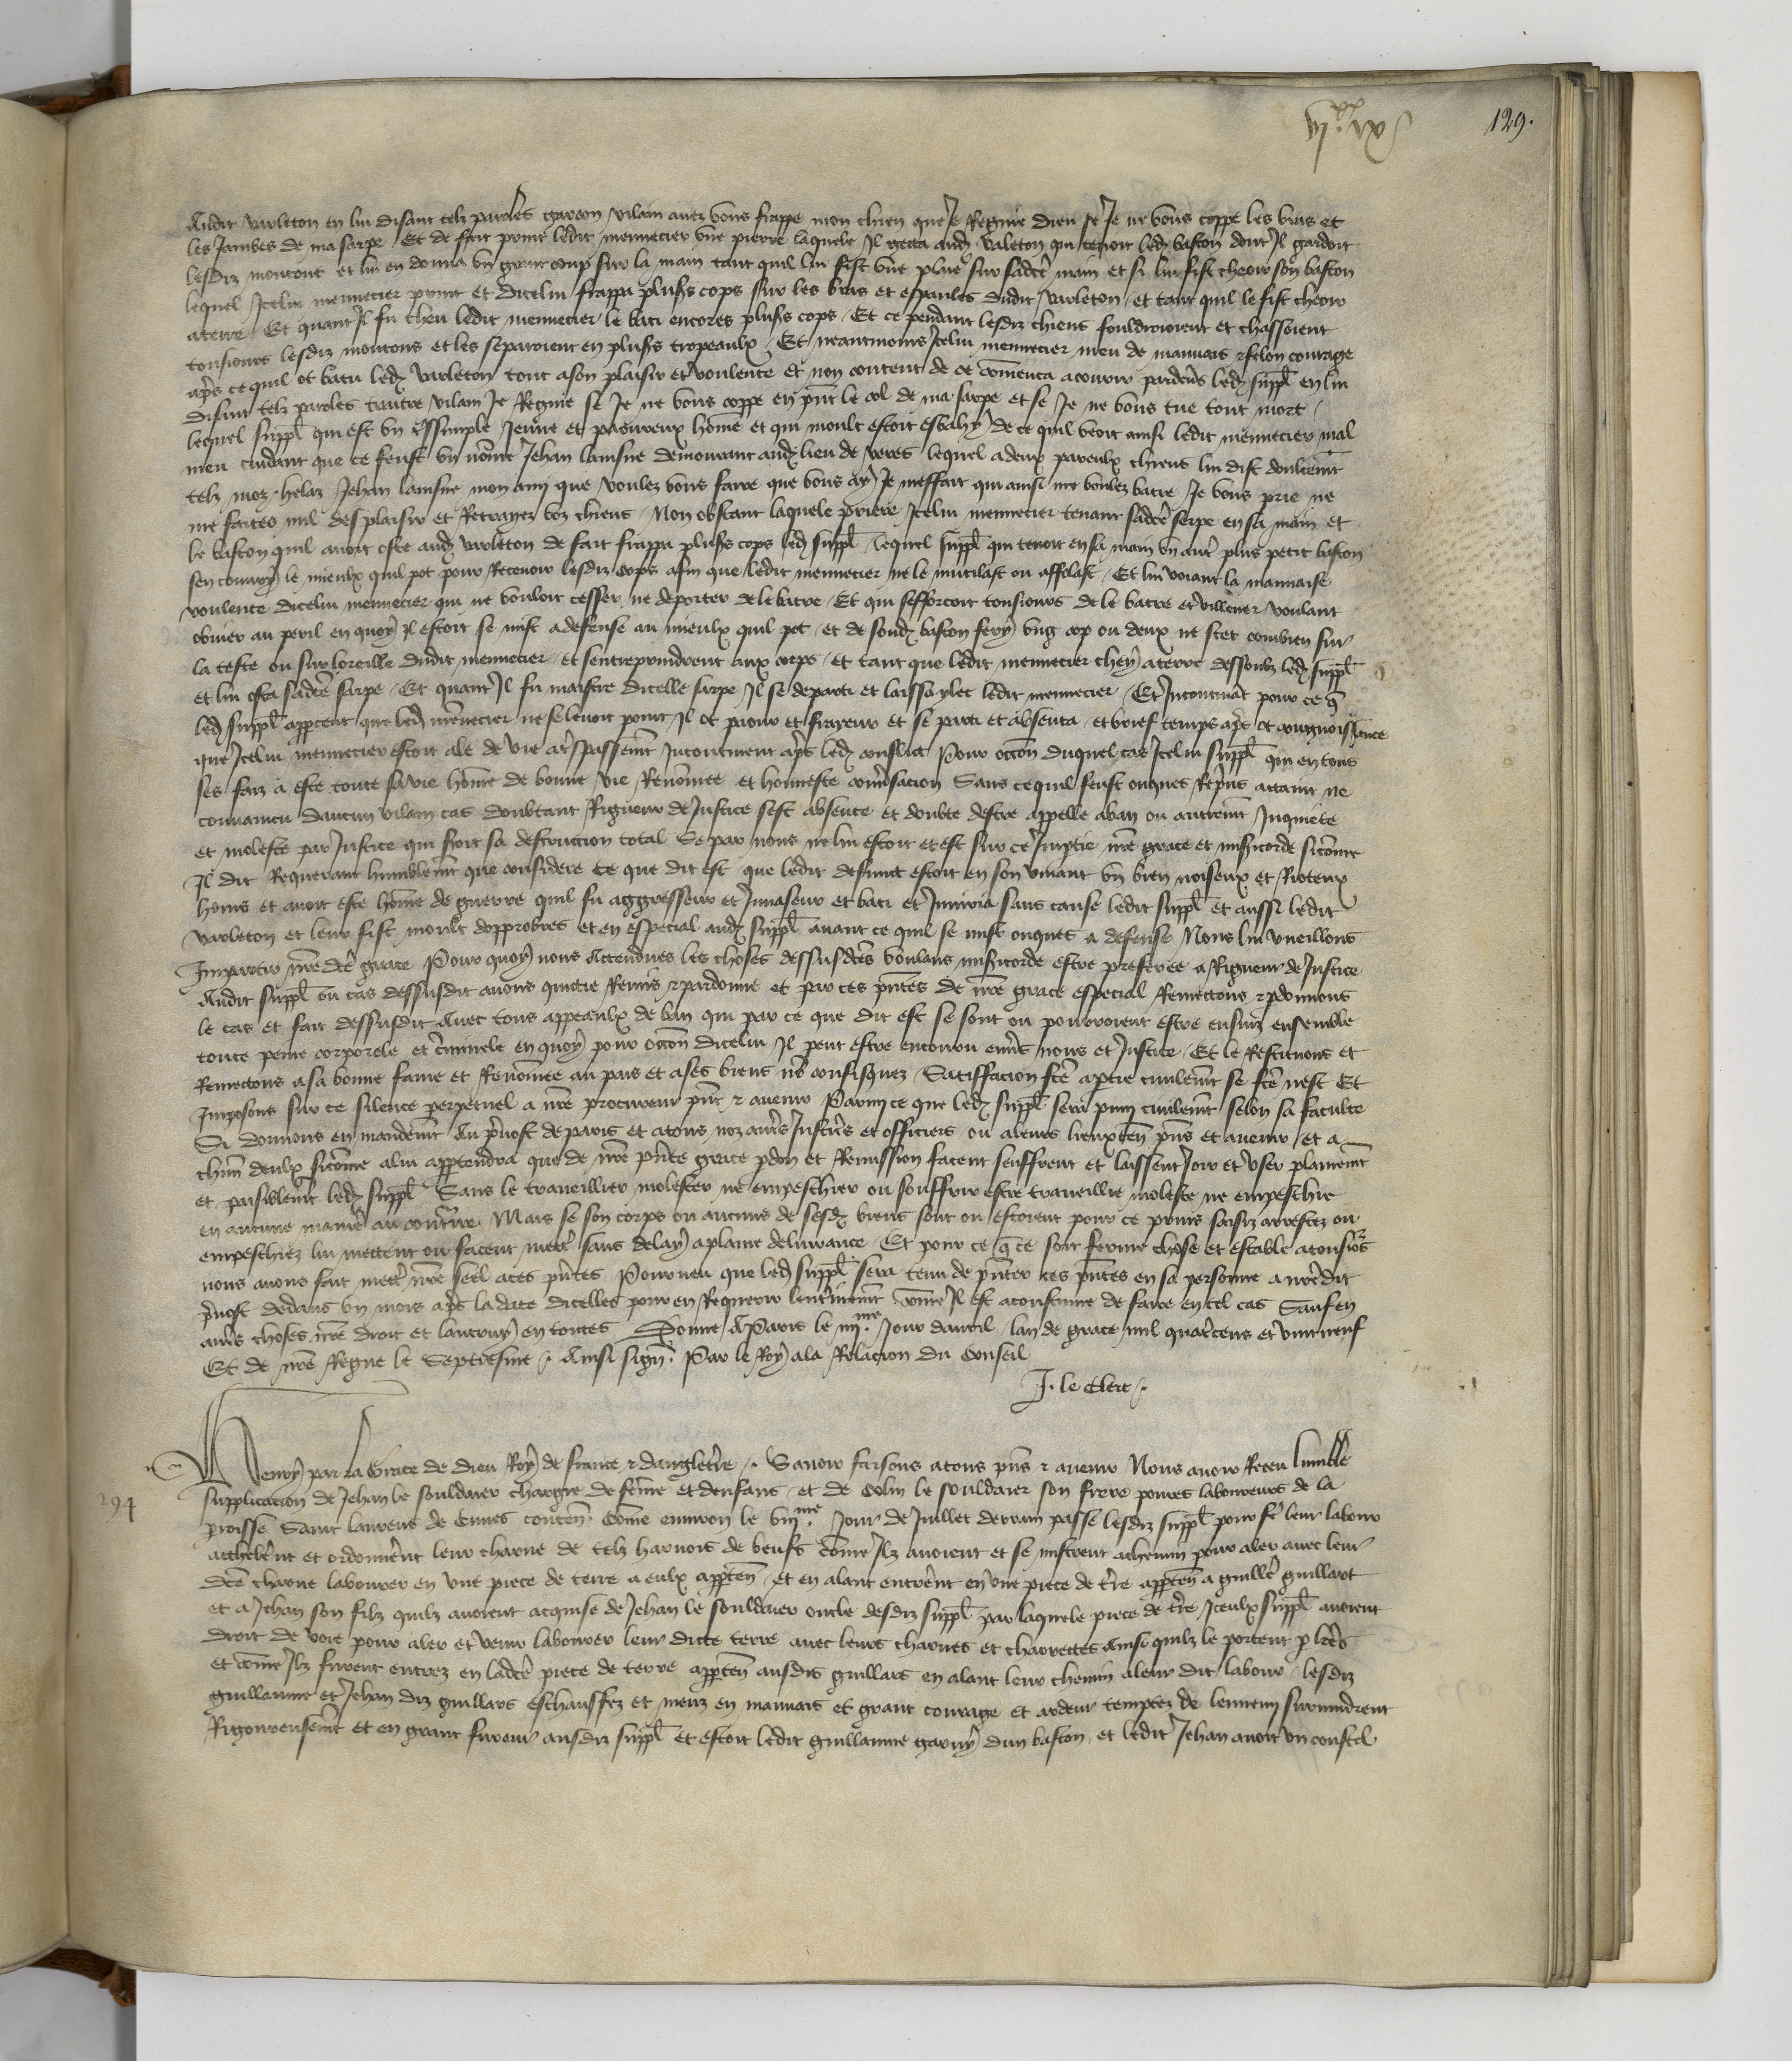 129.
Audit varleton en lui disant telz paroles garcon vilain avez vous frappe mon chien que Je Regnie dieu se Je ne vous coppe les bras et
les Jambes de ma sarpe Et de fait print ledit mennecier une pierre laquele Il getta aud varleton qui tenoit led baston dont Il gardoit
lesdiz moutons et lui en donna un grant coup sur la main tant quil lui fist une plaie sur sadcte main et si lui fist cheoir son baston
lequel Icelui mennecier print et dicelui frappa plus's cops sur les bras et espaules dudit varleton et tant quil le fist cheoir
aterre Et quant Il fu cheu ledit mennecier le bati encores plus's cops Et ce pendant lesdiz chiens fouldroioient et chassoient
tousiours lesdiz moutons et les separoient en plus's tropeaulx Et neantmoins Icelui mennecier meu de mauvais & felon courage
ap's ce quil ot batu led varleton tout a son plaisir et voulente et non content de ce comenca a courir pardevs led suppl en lui
disant telz paroles traitre vilain Je Regnie se Je ne vous coppe en pnt le col de ma sarpe et se Je ne vous tue tout mort
lequel suppl qui est un simple Jeune et paoureux home et qui moult estoit esbahy de ce quil veoit ainsi ledit mennecier mal
meu cuidant que ce feust un nome Jehan lainsne demourant aud lieu de veres lequel a deux pareulx chiens lui dist doulcemt
telz moz helas Jehan lainsne mon ami que voulez vous faire que vous ay Je meffait qui ainsi me voulez batre Je vous prie ne
me faites nul desplaisir et Retraiez voz chiens Non obstant laquele priere Icelui mennecier tenant sadcte serpe en sa main et
le baston quil avoit oste aud varleton de fait frappa plus's cops led suppl lequel suppl qui tenoit en sa main un aut' plus petit baston
sen couvry le mieulx quil pot pour Recevoir lesdiz cops afin que ledit mennecier ne le mutilast ou affolast Et lui voiant la mauvaise
voulente dicelui mennecier qui ne vouloit cesser ne deporter de le batre Et qui sefforcoit tousiours de le batre et villener voulant
obvier au peril en quoy Il estoit se mist a defense au mieulx quil pot et de soud baston fery ung cop ou deux ne scet combien sur
la teste ou sur loreille dudit mennecier et sentreprindrent aux corps et tant que ledit mennecier chey aterre dessoubz led suppl
et lui osta sadcte sarpe Et quant Il fu maistre dicelle sarpe Il se departi et laissa ylec ledit mennecier Et Incontinat pour ce q
led suppl appceut que led mennecier ne se levoit point Il ot paour et fraieur et se parti et absenta et brief temps ap's ot congnoissance
que Icelui mennecier estoit ale de vie a trespassemt Incontinent ap's led conflict Pour occon duquel cas Icelui suppl qui en tous
ses faiz a este toute sa vie home de bonne vie Renomee et honneste conv'sacion Sans ce quil feust onques Repris attaint ne
convaincu daucun vilain cas doubtant Rigueur de Justice sest absente et doubte destre appelle a ban ou autremt Inquiete
et moleste par Justice qui seroit sa destruction total Se par nous ne lui estoit et est sur ce Imptie nre grace et misicorde sicome
Il dit Requerant humblemt que considere ce que dit est que ledit defunct estoit en son vivant un bien noiseux et Rioteux
homs et avoit este home de guerre quil fu aggresseur et Invaseur et bati et Iniuria sans cause ledit suppl et aussi ledit
varleton et leur fist moult dopprobres et en especial aud suppl avant ce quil se mist onques a defense Nous lui vueillons
Impartir nre dcte grace Pour quoy nous Attendues les choses dessusdctes voulans misicorde estre preferee a Rigueur de Justice
Audit suppl ou cas dessusdit avons quicte Remis & pardonne et par ces pntes de nre grace especial Remettons & pdonnons
le cas et fait dessusdit Avec tous appeaulx de ban qui par ce que dit est se sont ou pourroient estre ensuiz ensemble
toute peine corporele et criminele en quoy pour occon dicelui Il peut estre encouru envs nous et Justice Et le Restituons et
Remettons a sa bonne fame et Renomee au pais et a ses biens no confisquez Satiffacion fcte a ptie civilemt se fcte nest Et
Imposons sur ce silence perpetuel a nre procureur pnt & avenir Parmi ce que led suppl sera puni civilemt selon sa faculte
Si donnons en mandemt Au p'vost de paris et a tous noz autres Justic's et officiers ou a leurs lieuxten pns et avenir et a
chun deulx sicome a lui apptendra que de nre pnte grace pdon et Remission facent seuffrent et laissent Joir et user plainemt
et paisiblemt led suppl Sans le traveillier molester ne empeschier ou souffrir estre traveillie moleste ne empeschie
en aucune maniere au contraire Mais se son corps ou aucuns de sesd biens sont ou estoient pour ce prins saisiz arrestez ou
empeschiez lui mettent ou facent mettr' sans delay a plaine delivrance Et pour ce q ce soit ferme chose et estable a tousiors
nous avons fait mettr' nre seel a ces pntes Pourveu que led suppl sera tenu de pnter ces pntes en sa personne a nredit
p'vost dedans un mois ap's la date dicelles pour en Requerir lenterinemt come Il est acoustume de faire en tel cas Sauf en
autres choses nre droit et lautruy en toutes Donne A Paris le iiiime Jour davril lan de grace mil quat'cens et vint neuf
Et de nre Regne le Septiesme Ainsi sign Par le Roy a la Relacion du Conseil
J. le Clerc
294
Henry par la Grace de dieu Roy de france & dangleterre Savoir faisons a tous pns & avenir Nous avoir Receu lumble
supplicacion de Jehan le souldoier chargie de feme et denfans et de Colin le souldoier son frere povres laboureurs de la
proisse Saint laurens de Cuves conten Come environ le viiime Jour de Juillet derrain passe lesdiz suppl pour fe leur labour
attelerent et ordonnerent leur charue de telz harnois de beufs come Ilz avoient et se mistrent a chemin pour aler avec leur
dcte charue labourer en une piece de terre a eulx appten et en alant entrerent en une piece de t're appten a guille guillart
et a Jehan son filz quilz avoient acquise de Jehan le souldoier oncle desdiz suppl par laquele piece de t're Iceulx suppl avoient
droit de voie pour aler et venir labourer leur dicte terre avec leurs charues et charrettes Ainsi quilz le portent p lres
et come Ilz furent entrez en ladcte piece de terre appten ausdis guillars en alant leur chemin a leur dit labour lesdiz
guillaume et Jehan diz guillars eschauffez et meuz en mauvais et grant courage et ardeur temptez de lennemi survindrent
Rigoureusemt et en grant fureur ausdiz suppl et estoit ledit guillaume garny dun baston et ledit Jehan avoit un coustel